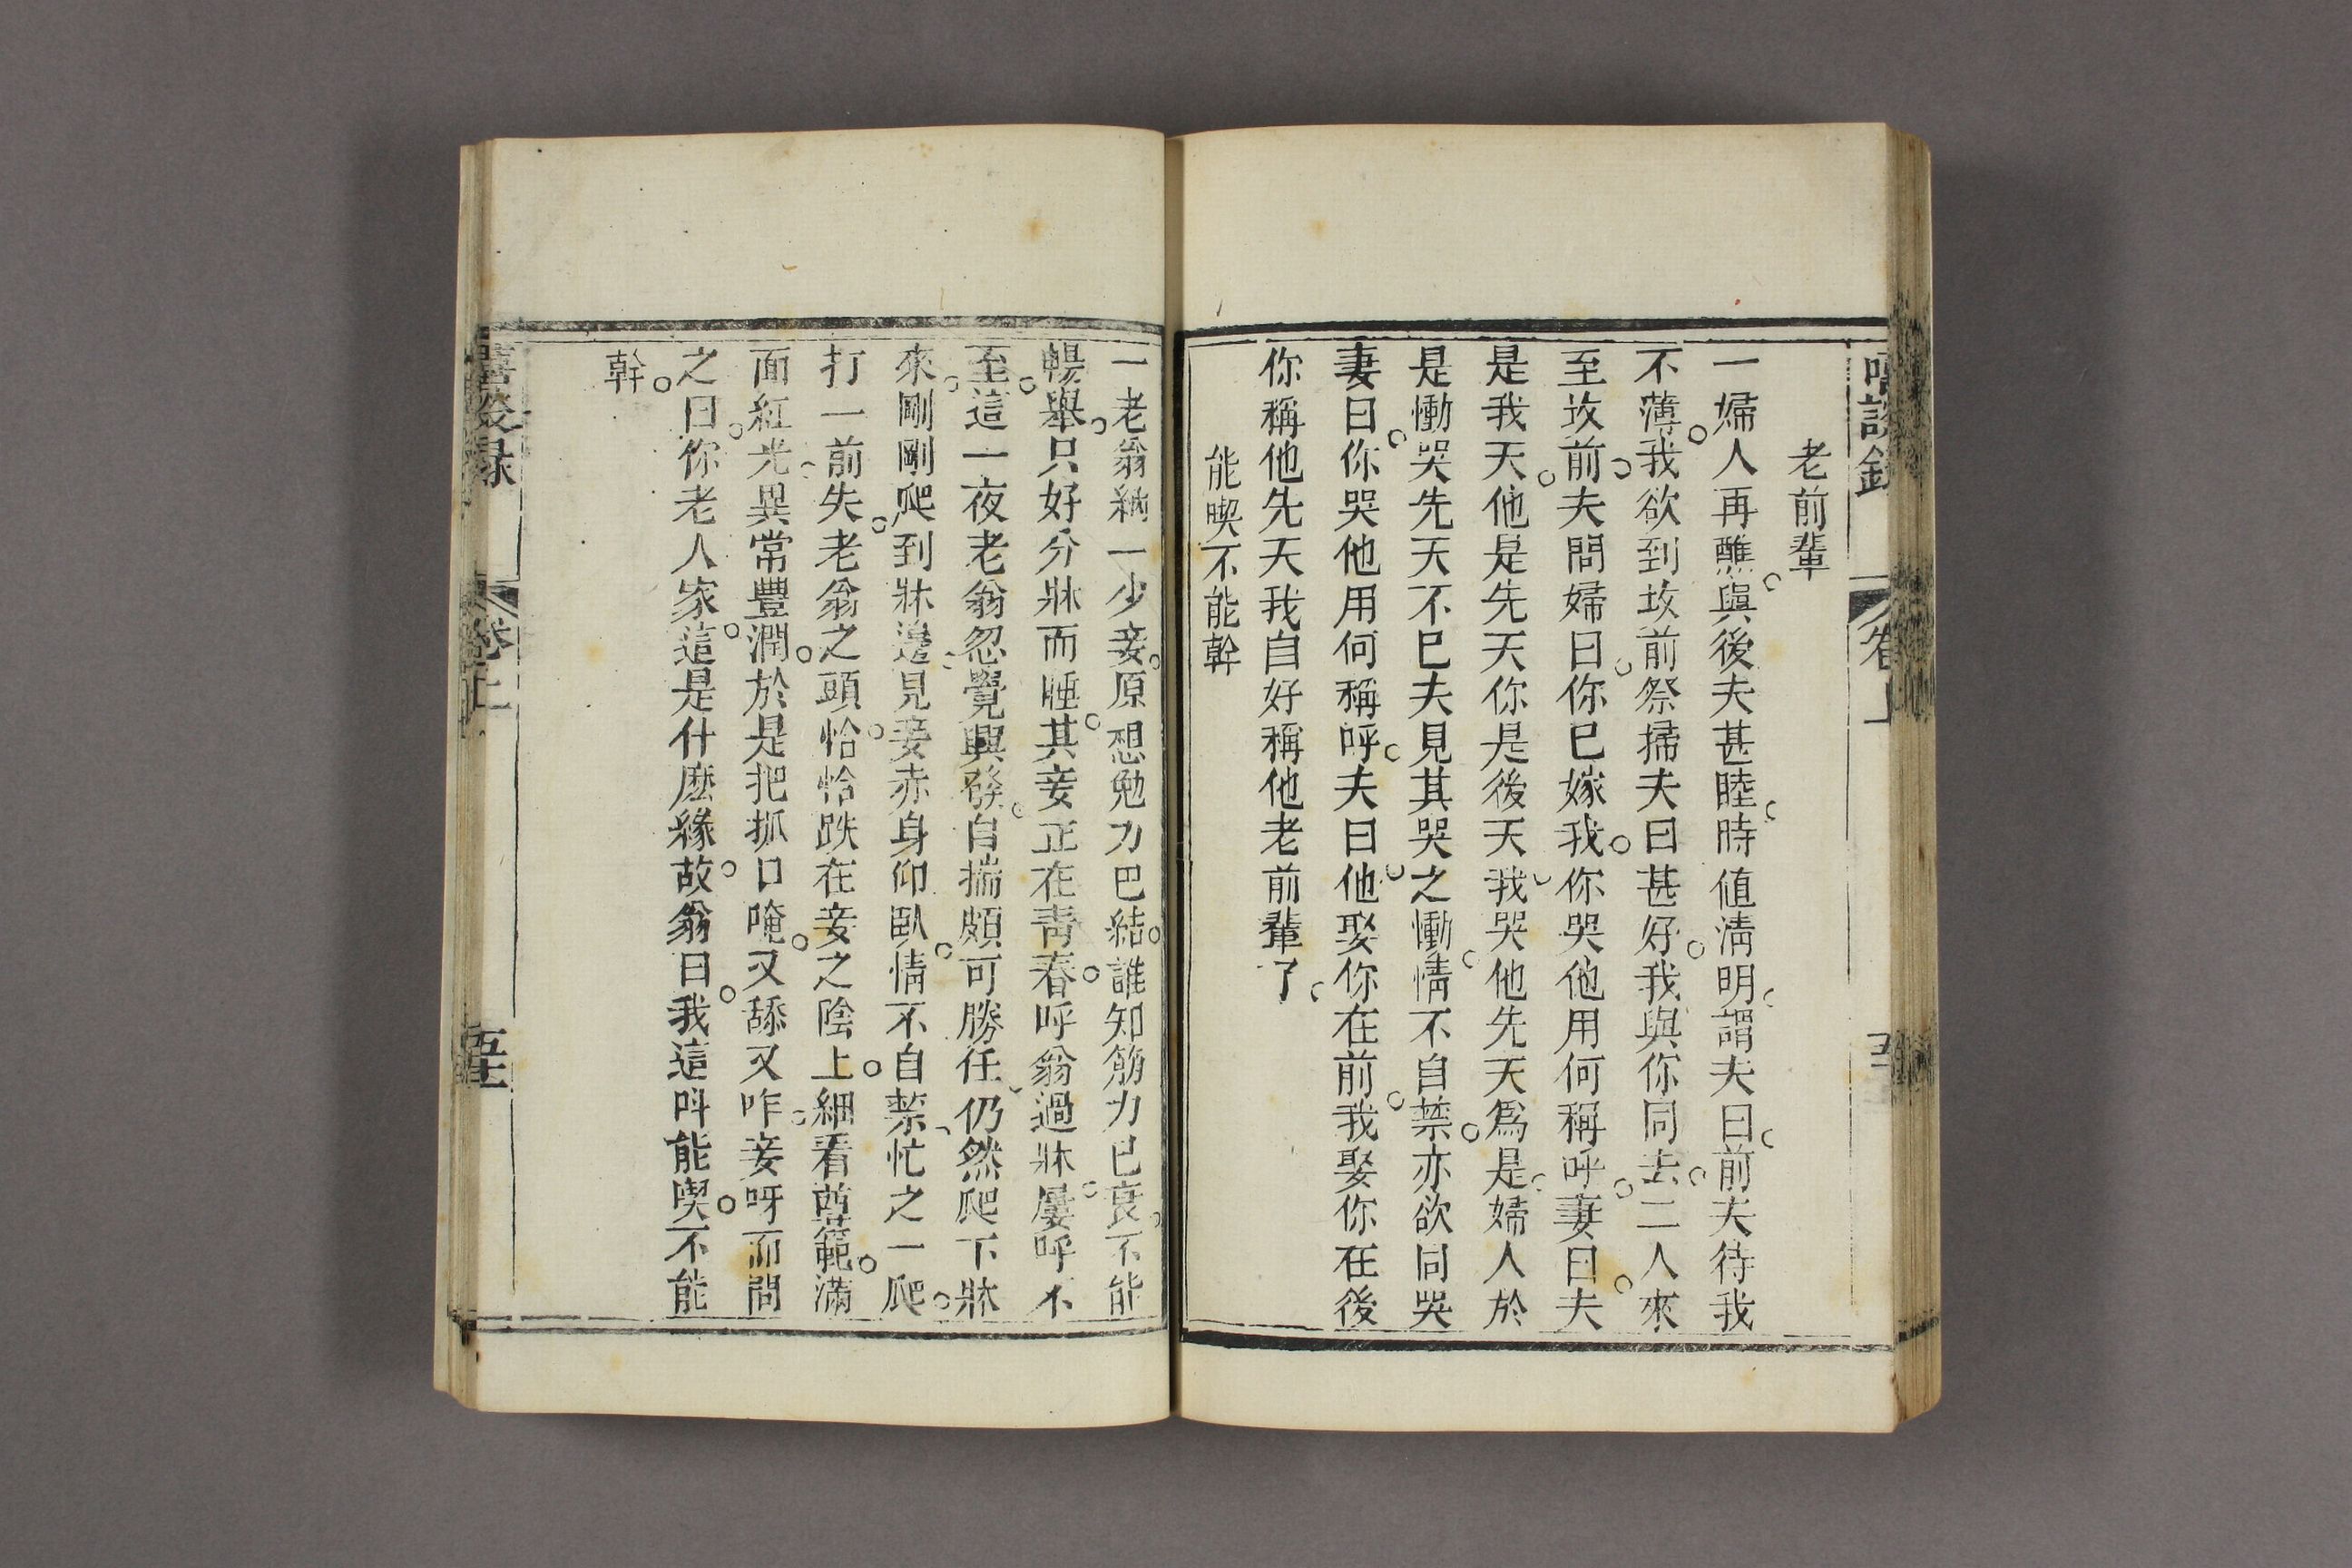 老前輩
一婦人再醮與後夫甚睦時値淸明謂夫曰前夫待我
不薄我欲到坟前祭掃夫曰甚好我與你同去二人來
至坟前夫問婦曰你巳嫁我你哭他用何稱呼妻曰夫
是我天他是先天你是後天我哭他先天爲是婦人於
是慟哭先天不巳夫見其哭之慟情不自禁亦欲同哭
妻曰你哭他用何稱呼夫曰他娶你在前我娶你在後
你稱他先天我自好稱他老前輩了
能喫不能幹
一老翁納一少妾原想勉力巴結誰知筋力已衰不能
暢舉只好分牀而睡其妾正在靑春呼翁過牀屢呼不
至這一夜老翁忽覺興發自揣頗可勝任仍然爬下牀
來剛剛爬到牀邊見妾赤身仰臥情不自禁忙之一爬
打一前失老翁之頭恰恰跌在妾之陰上細看尊範滿
面紅光異常豐潤於是把抓口唵又舔又咋妾呀而問
之曰你老人家這是什麽緣故翁曰我這呌能喫不能
幹
卷上